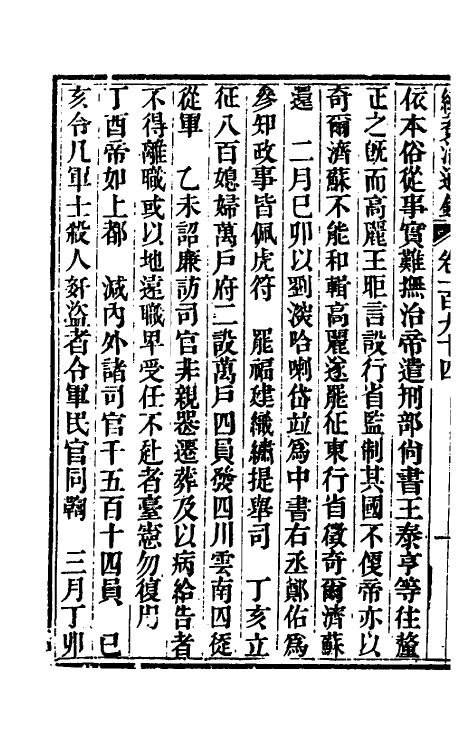 續資治通鑑 卷一百九十四 一
依本俗從事實難撫治帝遣刑部尙書王泰亨等往釐
正之旣而高麗王昛言設行省監制其國不便帝亦以
奇爾濟蘇不能和輯高麗遂罷征東行省徵奇爾濟蘇
還 二月己卯以劉深哈喇岱並爲中書右丞鄭佑爲
參知政事皆佩虎符 罷福建織繡提舉司 丁亥立
征八百媳婦萬戶府二設萬戶四員發四川雲南囚徒
從軍 乙未詔廉訪司官非親喪遷葬及以病給告者
不得離職或以地遠職卑受任不赴者臺憲勿復用
丁酉帝如上都 減內外諸司官千五百十四員 己
亥令凡軍士殺人姦盜者令軍民官同鞫 三月丁卯